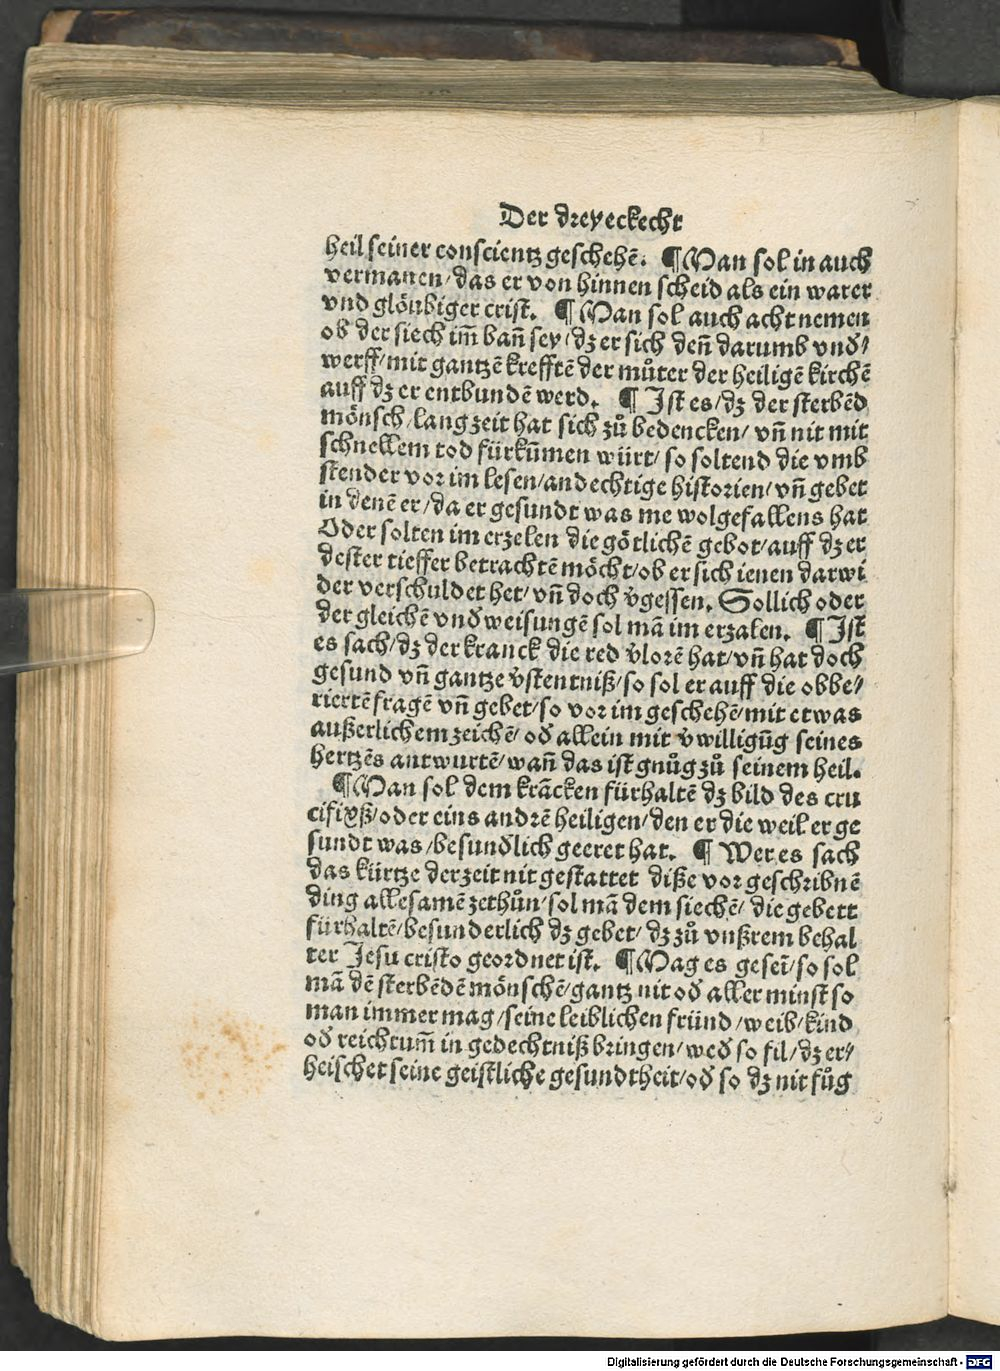 Der dreyeckecht
heil seiner conscientz geschehē. ¶ Man sol in auch
vermanen/das er von hinnen scheid als ein warer
vnd glöubiger crist. ¶ Man sol auch acht nemen
ob der siech im̄ ban̄ sey/dz er sich den̄ darumb vnd̕/
werff/mit gantzē krefftē der můter der heiligē kirchē
auff dz er entbundē werd. ¶ Ist es/dz der sterbēd
mönsch/lang zeit hat sich zů bedencken/vn̄ nit mit
schnellem tod fürkūmen würt/so soltend die vmb
stender vor im lesen/andechtige historien/vn̄ gebet
in denē er/da er gesundt was me wolgefallens hat
Oder solten im erzelen die götlichē gebot/auff dz er
dester tieffer betrachtē möcht/ob er sich ienen darwi
der verschuldet het/vn̄ doch v̓gessen. Sollich oder
der gleichē vnd̕weisungē sol mā im erzalen. ¶ Ist
es sach/dz der kranck die red v̓lorē hat/vn̄ hat doch
gesund vn̄ gantze v̓stentniß/so sol er auff die obbe/
riertē fragē vn̄ gebet/so vor im geschehē/mit etwas
außerlichem zeichē/od̕ allein mit v̓willigūg seines
hertzēs antwurtē/wan̄ das ist gnůg zů seinem heil.
¶ Man sol dem krācken fürhaltē dz bild des cru
cifixß/oder eins andrē heiligen/den er die weil er ge
sundt was/besund̕lich geeret hat. ¶ Wer es sach
das kürtze der zeit nit gestattet diße vor geschribnē
ding alle samē zethůn/sol mā dem siechē/die gebett
fürhaltē/besunderlich dz gebet/dz zů vnßrem behal
ter Jesu cristo geordnet ist. ¶ Mag es geseī/so sol
mā dē sterbēdē mönschē/gantz nit od̕ aller minst so
man immer mag/seine leiblichen fründ/weib/kind
od̕ reichtum̄ in gedechtniß bringen/wed̕ so fil/dz er/
heischet seine geistliche gesundtheit/od̕ so dz nit fůg
Digitalisierung gefördert durch die Deutsche Forschungsgemeinschaft - DFG